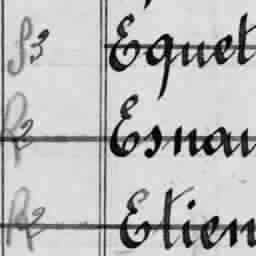 S3 Equet
R2 Esnau
R2 Etien